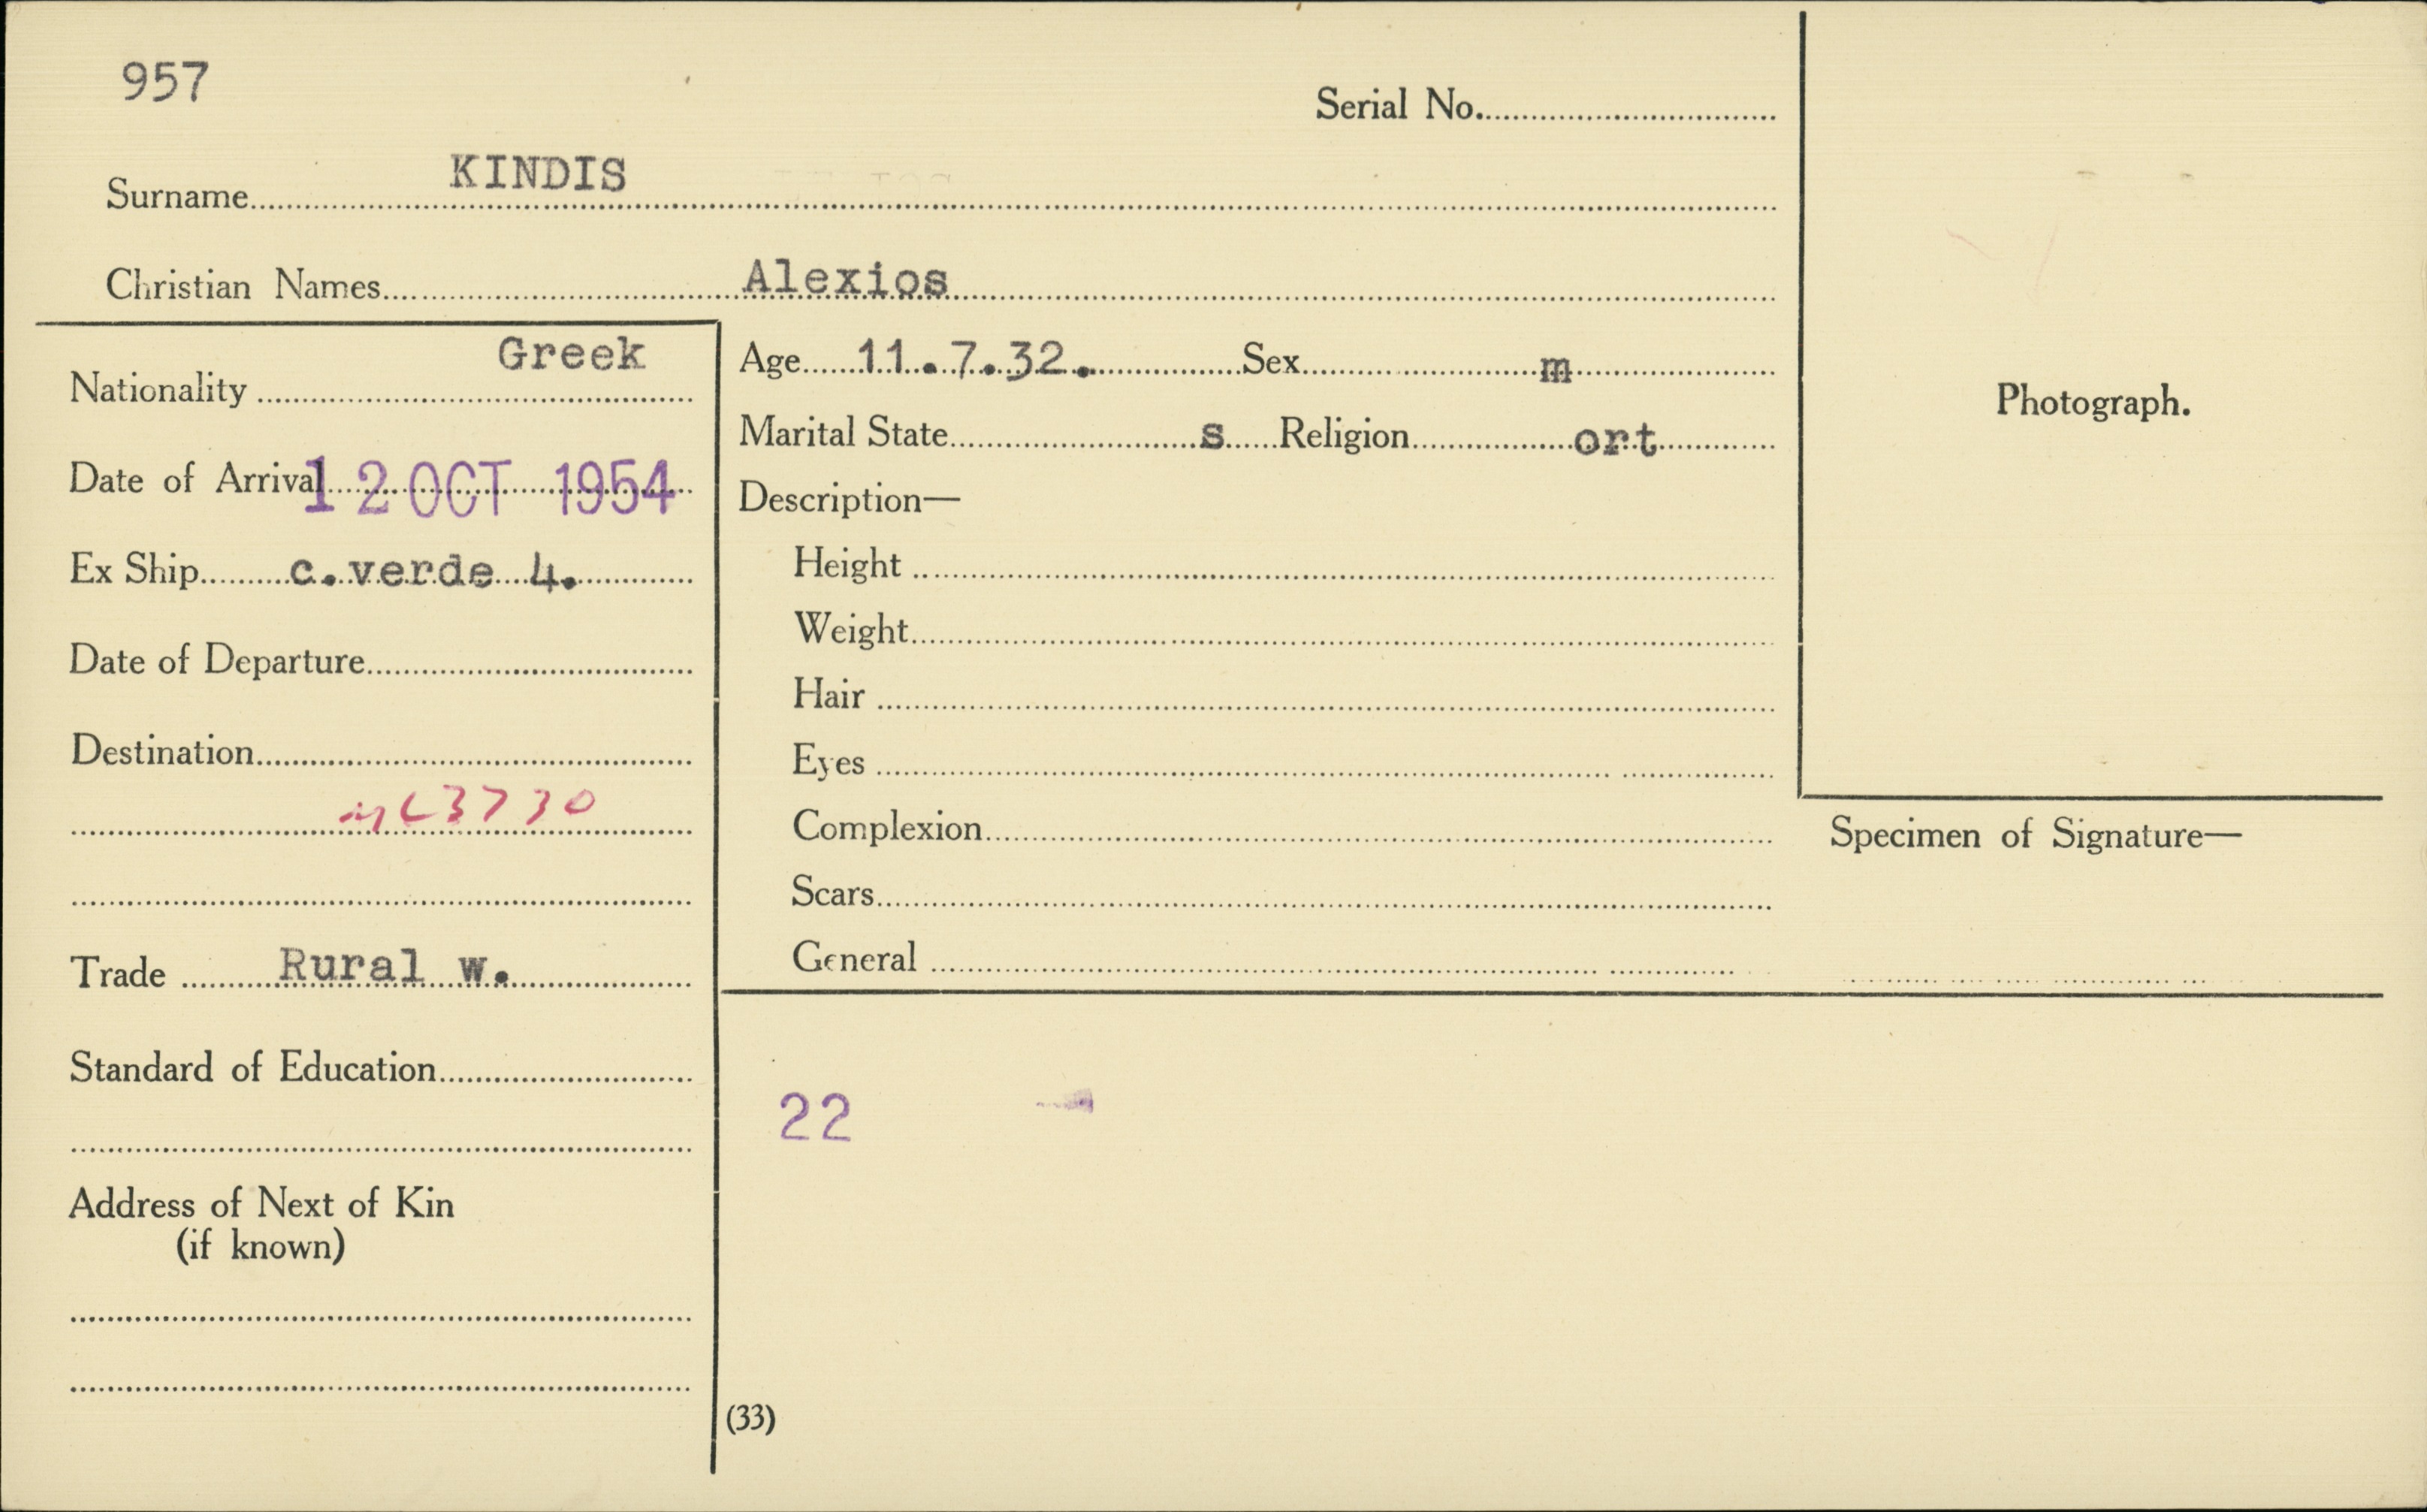 957
Serial No.
Surname KINDIS
Christian Names Alexios
Nationality Greek
Date of Arrival 12 OCT 1954
Ex Ship c.verde 4.
Date of Departure
Destination
3730
Trade Rural w.
Standard of Education
Address of Next of Kin
(if known)
Age 11.7.32. Sex m
Marital State s Religion ort
Description—
Height
Weight
Hair
Eyes
Complexion
Scars
General
Photograph.
Specimen of Signature—
22
(33)